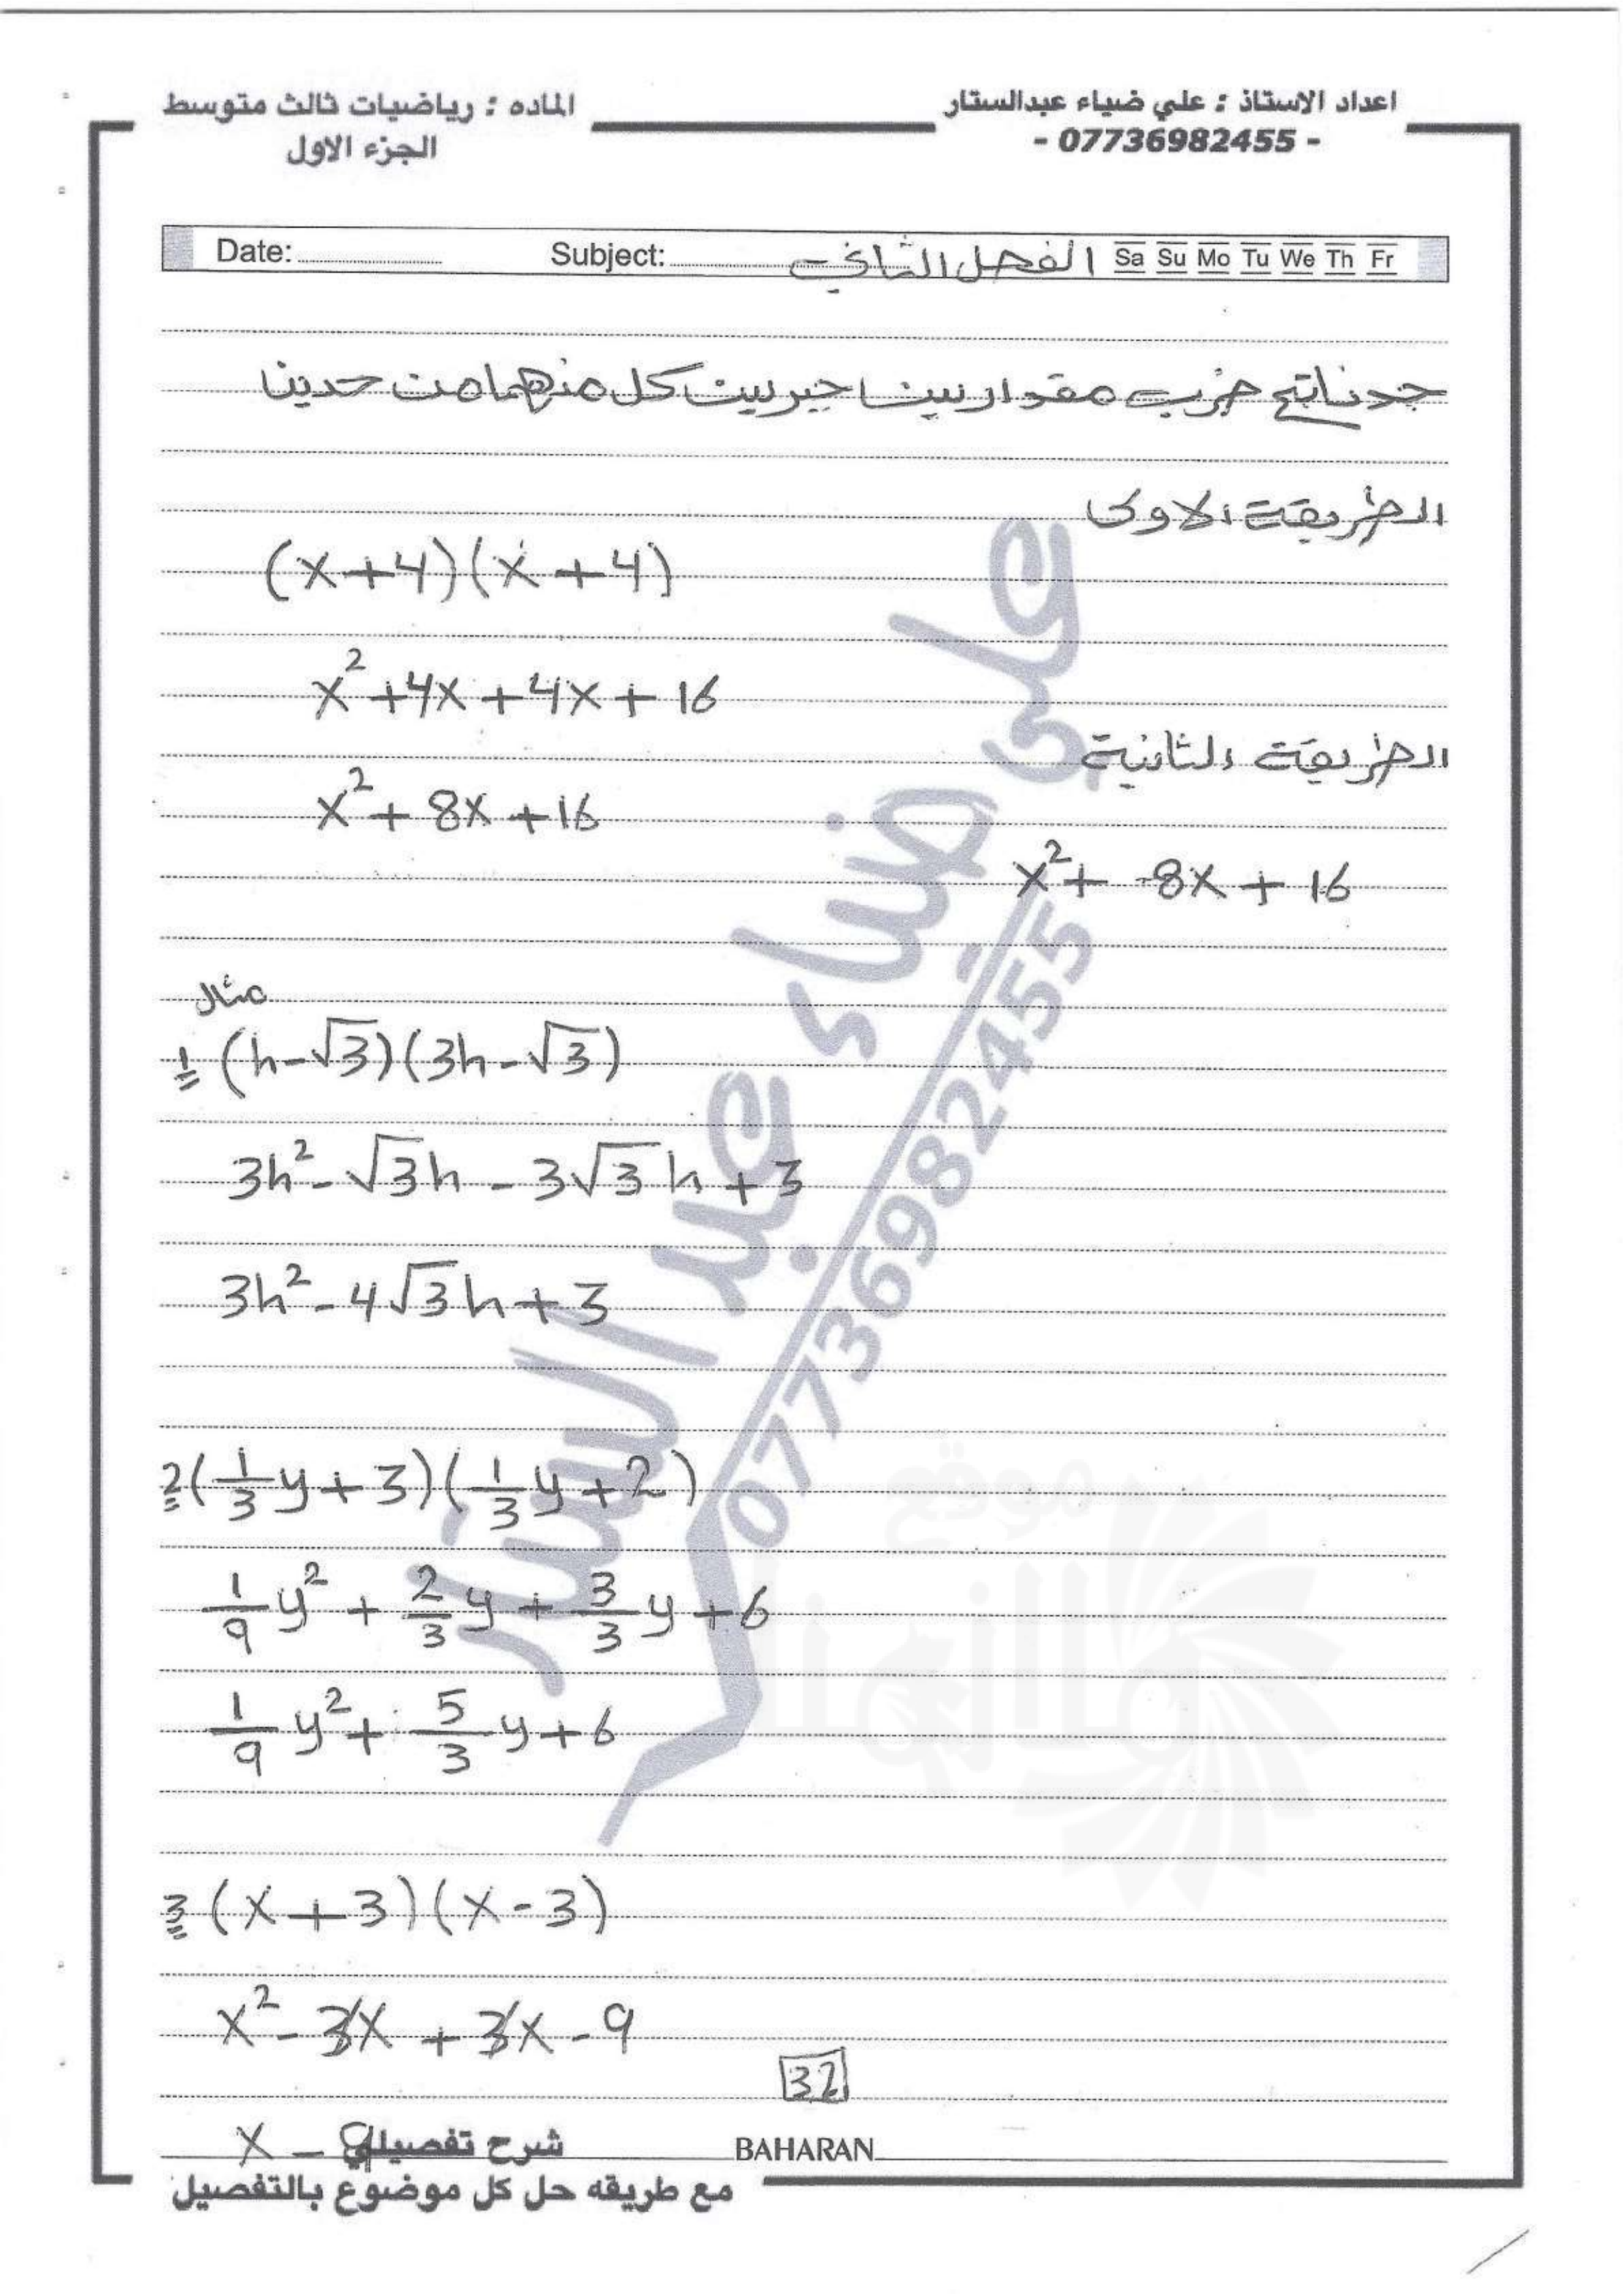 اعداد الاستاذ : علي ضياء عبدالستار
- 07736982455 -
الماده : رياضيات ثالث متوسط
الجزء الاول
Date: Subject: الفصل الثاني Sa Su Mo Tu We Th Fr
جد ناتج ضرب مقدارين جبريين كل منهما من حدين
الطريقة الاولى
(x+4)(x+4)
x²+4x+4x+16
x²+8x+16
الطريقة الثانية
x²+ 8x + 16
مثال
1 (h-√3)(3h-√3)
3h²-√3h-3√3h+3
3h²-4√3h+3
2 (1/3 y+3)(1/3 y+2)
1/9 y² + 2/3 y + 3/3 y + 6
1/9 y² + 5/3 y + 6
3 (x+3)(x-3)
x²-3x+3x-9
32
x - 9
شرح تفصيلي
BAHARAN
مع طريقه حل كل موضوع بالتفصيل
علي ضياء عبد الستار
07736982455
موقع